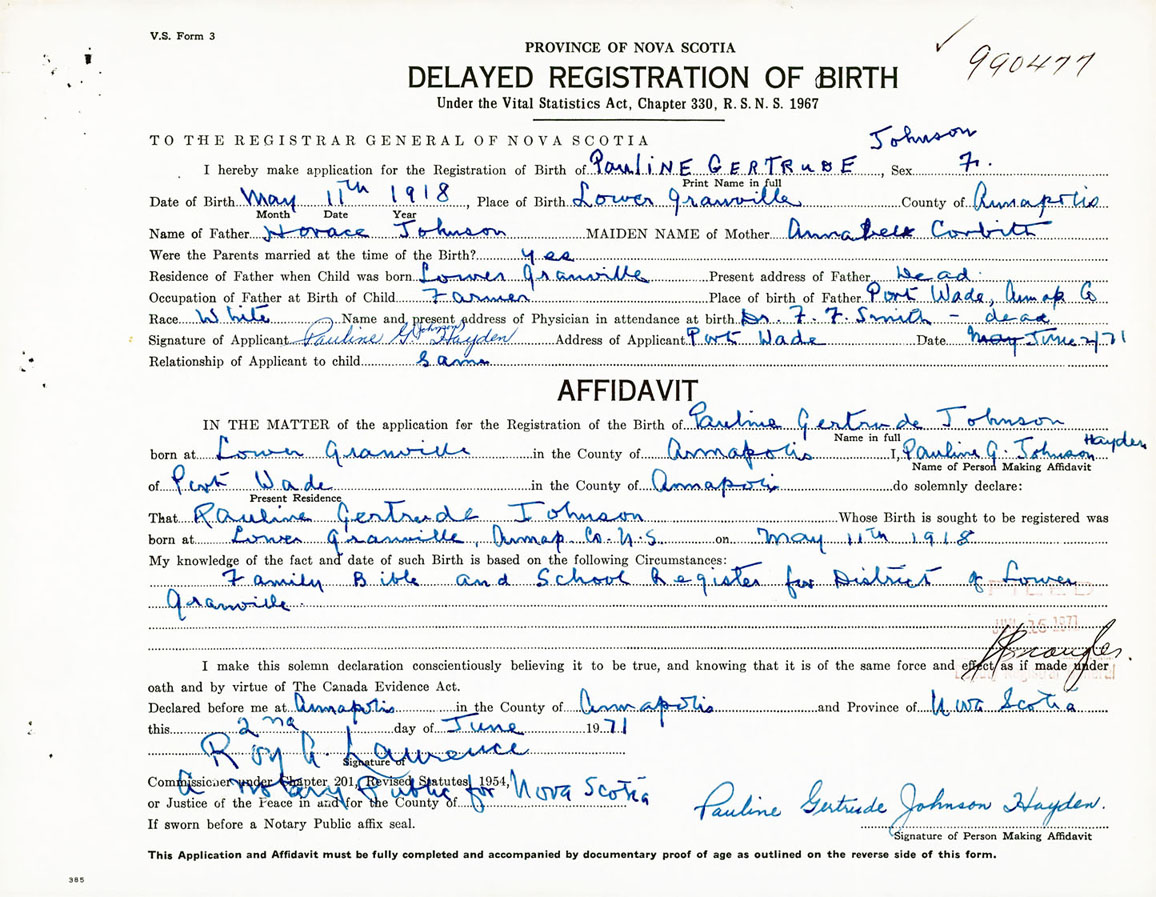 V.S. Form 3
PROVINCE OF NOVA SCOTIA
990477
DELAYED REGISTRATION OF BIRTH
Under the Vital Statistics Act, Chapter 330, R. S. N. S. 1967
TO THE REGISTRAR GENERAL OF NOVA SCOTIA
Johnson
I hereby make application for the Registration of Birth of PauliNE GERTRuDE, Sex F.
Print Name in full
Date of Birth May 11th 1918, Place of Birth Lower Granville County of Annapolis
Month Date Year
Name of Father Horace Johnson MAIDEN NAME of Mother Annabell Corbitt
Were the Parents married at the time of the Birth? yes
Residence of Father when Child was born Lower Granville Present address of Father Dead
Occupation of Father at Birth of Child Farmer Place of birth of Father Port Wade, Annap Co
Race White Name and present address of Physician in attendance at birth Dr. F. F. Smith - dead
Signature of Applicant Pauline G. Johnson Hayden Address of Applicant Port Wade Date May June 2/71
Relationship of Applicant to child Same
AFFIDAVIT
IN THE MATTER of the application for the Registration of the Birth of Pauline Gertrude Johnson
Name in full
born at Lower Granville in the County of Annapolis I, Pauline G. Johnson Hayden
Name of Person Making Affidavit
of Port Wade in the County of Annapolis do solemnly declare:
Present Residence
That Pauline Gertrude Johnson Whose Birth is sought to be registered was
born at Lower Granville, Annap. Co. N.S. on May 11th 1918
My knowledge of the fact and date of such Birth is based on the following Circumstances:
Family Bible and School Register for District of Lower
Granville
FILED
1971
I make this solemn declaration conscientiously believing it to be true, and knowing that it is of the same force and effect as if made under
oath and by virtue of The Canada Evidence Act.
Declared before me at Annapolis in the County of Annapolis and Province of Nova Scotia
this 2nd day of June 1971
Roy A. Lawrence
Signature of
Commissioner under Chapter 201, Revised Statutes 1954,
A Notary Public for Nova Scotia
or Justice of the Peace in and for the County of
Pauline Gertrude Johnson Hayden.
If sworn before a Notary Public affix seal.
Signature of Person Making Affidavit
This Application and Affidavit must be fully completed and accompanied by documentary proof of age as outlined on the reverse side of this form.
385